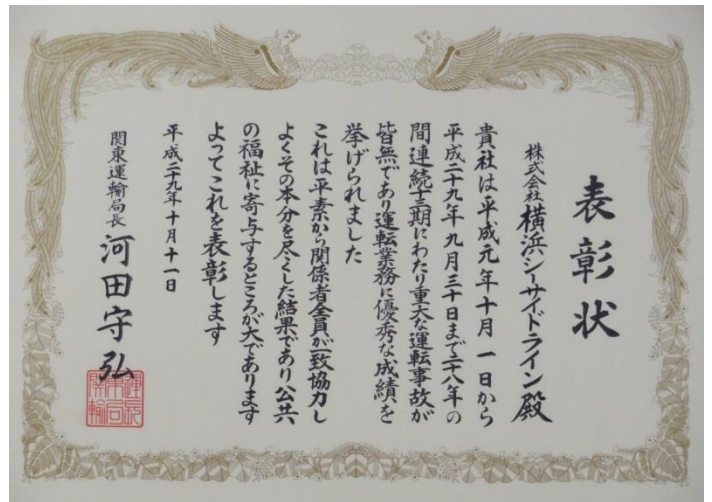 表彰状
株式会社横浜シーサイドライン殿
貴社は平成元年十月一日から
平成二十九年九月三十日まで二十八年の
間連続十三期にわたり重大な運転事故が
皆無であり運転業務に優秀な成績を
挙げられました
これは平素から関係者全員が一致協力し
よくその本分を尽くした結果であり公共
の福祉に寄与するところが大であります
よってこれを表彰します
平成二十九年十月十一日
関東運輸局長 河田守弘
関東運輸局長